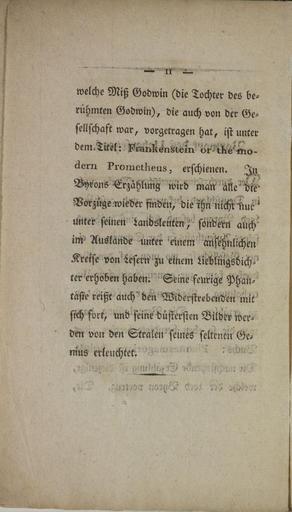 — 11 —
welche Miß Godwin (die Tochter des be-
rühmten Godwin), die auch von der Ge-
sellschaft war, vorgetragen hat, ist unter
dem Titel: Frankenstein or the mo-
dern Prometheus, erschienen. In
Byrons Erzählung wird man alle die
Vorzüge wieder finden, die ihn nicht nur
unter seinen Landsleuten, sondern auch
im Auslande unter einem ansehnlichen
Kreise von Lesern zu einem Lieblingsdich-
ter erhoben haben. Seine feurige Phan-
tasie reißt auch den Widerstrebenden mit
sich fort, und seine düstersten Bilder wer-
den von den Stralen seines seltenen Ge-
nius erleuchtet.